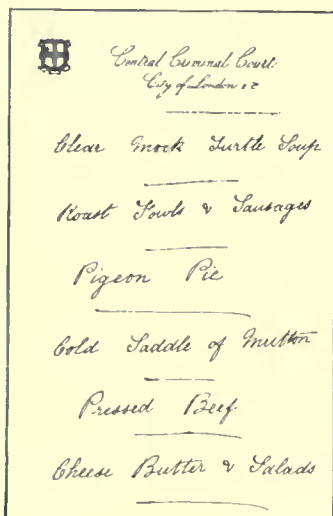 Central Criminal Court
City of London E C
Clear Mock Turtle Soup
Roast Fowls & Sausages
Pigeon Pie
Cold Saddle of Mutton
Pressed Beef
Cheese Butter & Salads